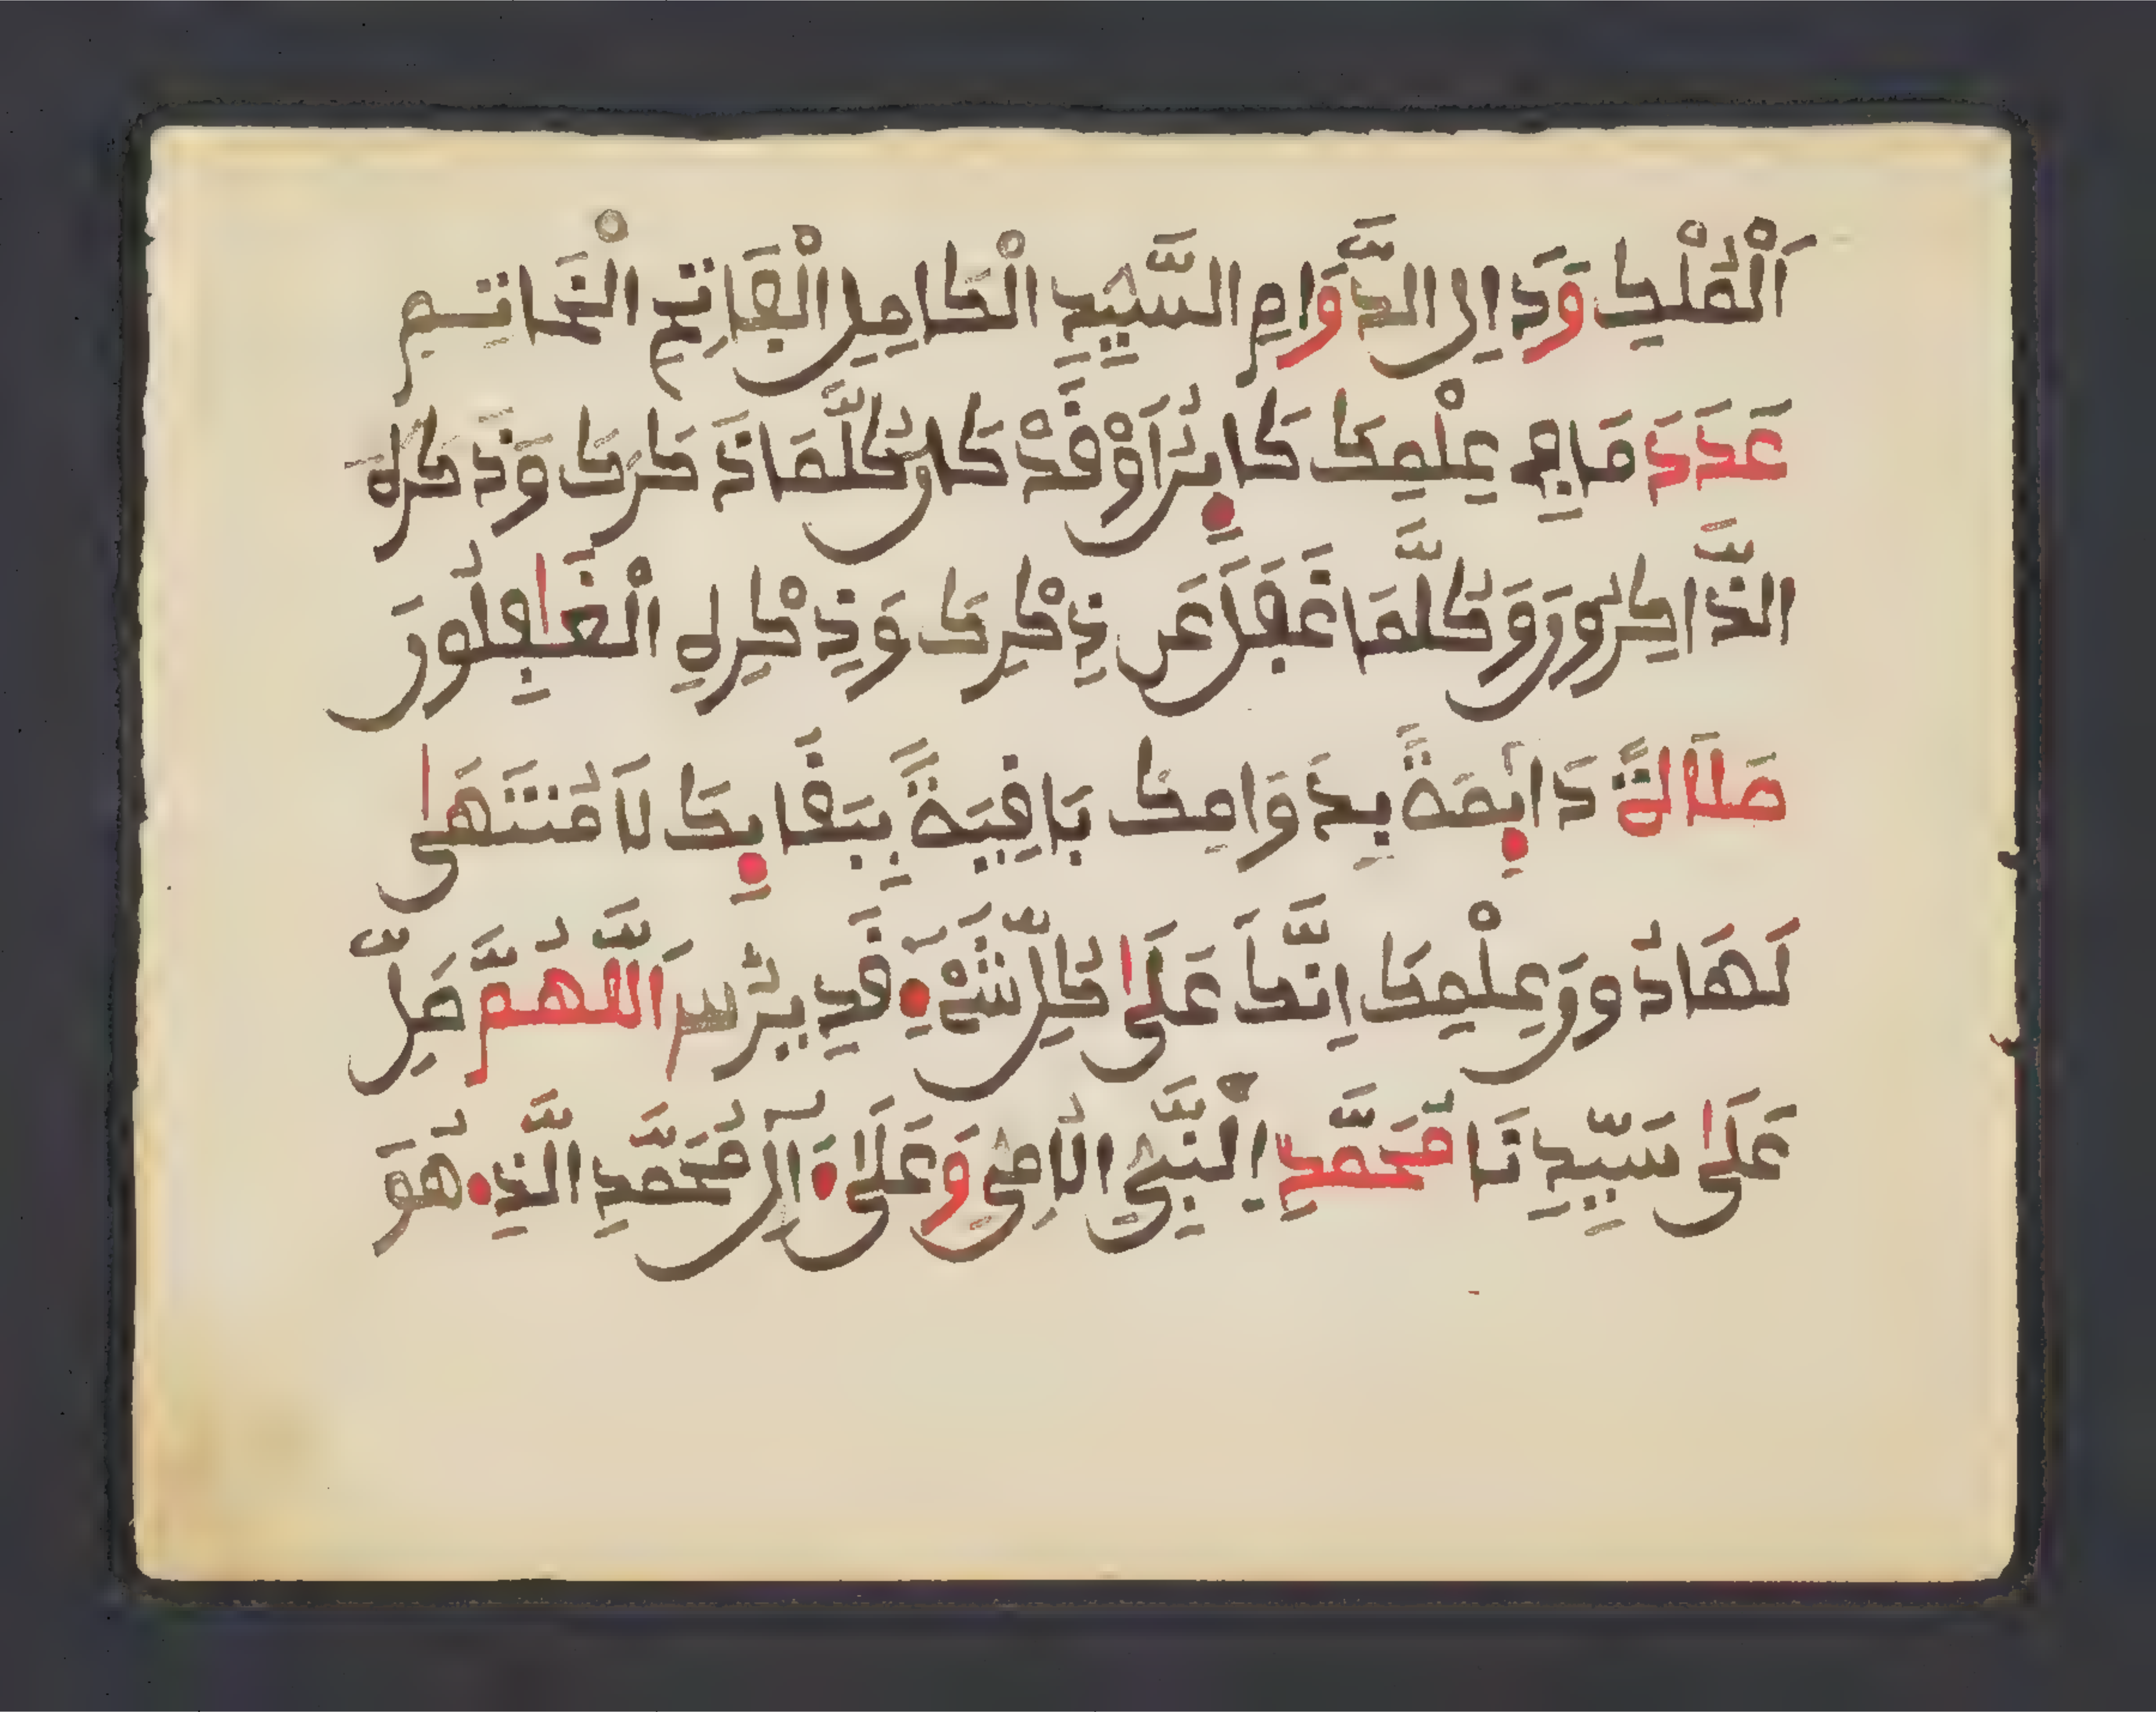 اَلْمُلْكِ وَدَارِ الدَّوَامِ السَّيِّدِ الْكَامِلِ الْفَاتِحِ الْخَاتِمِ
عَدَدَ مَا فِي عِلْمِكَ كَائِنٌ اَوْ قَدْ كَانَ كُلَّمَا ذَكَرَكَ وَذَكَرَهُ
الذَّاكِرُونَ وَكُلَّمَا غَفَلَ عَن ذِكْرِكَ وَذِكْرِهِ الْغَافِلُونَ
صَلَاةً دَائِمَةً بِدَوَامِكَ بَاقِيَةً بِبَقَائِكَ لَا مُنْتَهَى
لَهَا دُونَ عِلْمِكَ اِنَّكَ عَلَى كُلِّ شَيْءٍ قَدِيرٌ اَللَّهُمَّ صَلِّ
عَلَى سَيِّدِنَا مُحَمَّدٍ اِلنَّبِيِّ الْاُمِّيِّ وَعَلَى آلِ مُحَمَّدِ الَّذِي هُوَ